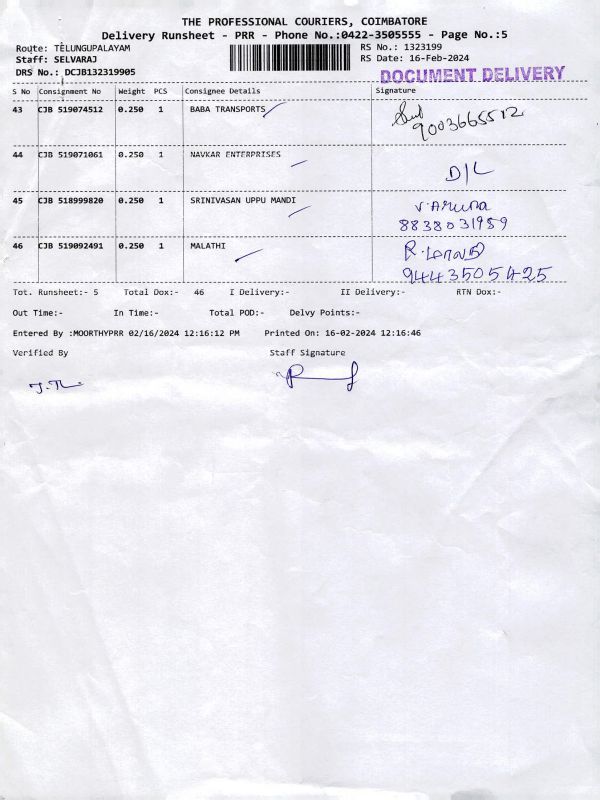 THE PROFESSIONAL COURIERS, COIMBATORE
Delivery Runsheet - PRR - Phone No.:0422-3505555 - Page No.:5
Route: TELUNGUPALAYAM
RS No.: 1323199
Staff: SELVARAJ
RS Date: 16-Feb-2024
DRS No.: DCJB132319905
DOCUMENT DELIVERY
S No Consignment No Weight PCS Consignee Details Signature
43 CJB 519074512 0.250 1 BABA TRANSPORTS
9003665512
44 CJB 519071061 0.250 1 NAVKAR ENTERPRISES
D/L
45 CJB 518999820 0.250 1 SRINIVASAN UPPU MANDI
V.Aruna
8838031959
46 CJB 519092491 0.250 1 MALATHI
9443505425
Tot. Runsheet:- 5 Total Dox:- 46 I Delivery:- II Delivery:- RTN Dox:-
Out Time:- In Time:- Total POD:- Delvy Points:-
Entered By :MOORTHYPRR 02/16/2024 12:16:12 PM Printed On: 16-02-2024 12:16:46
Verified By Staff Signature